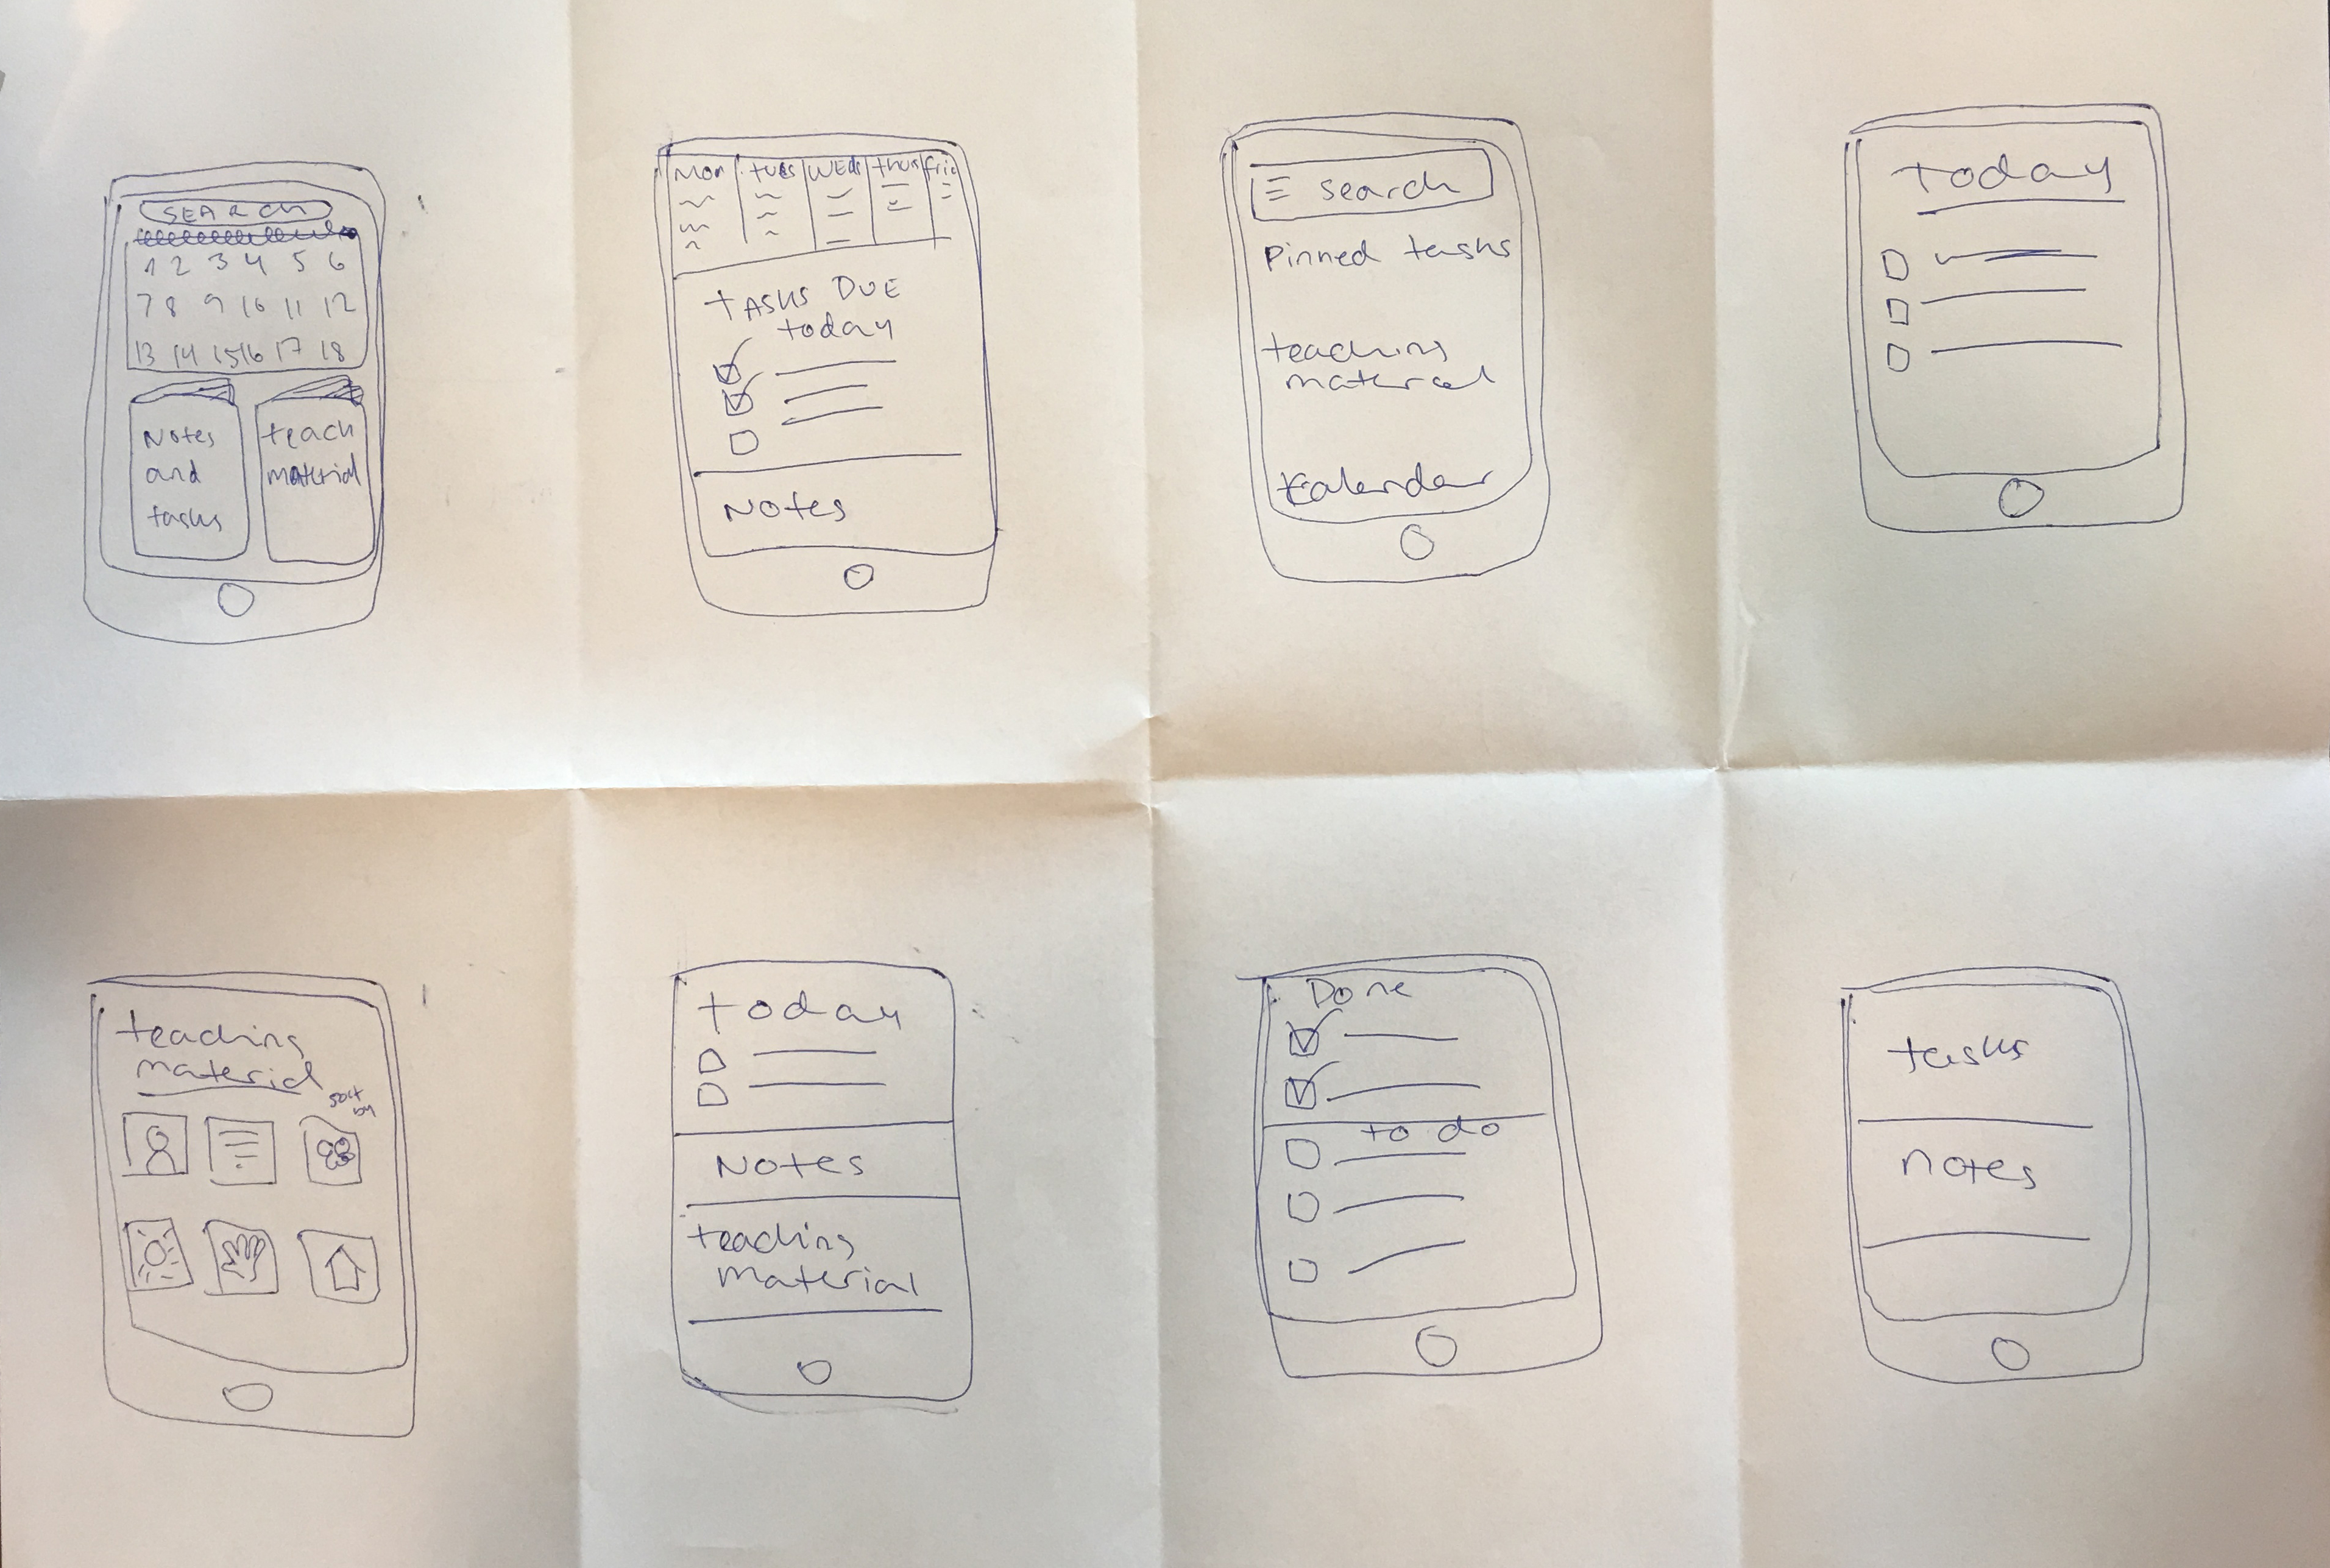 SEARCH
1 2 3 4 5 6
7 8 9 10 11 12
13 14 15 16 17 18
Notes
and
tasks
teach
material
Mon tues WEds thurs frid
tASKS DUE
today
Notes
search
Pinned tasks
teaching
material
Kalendar
today
teaching
material
sort
by
today
Notes
teaching
material
Done
to do
tasks
notes